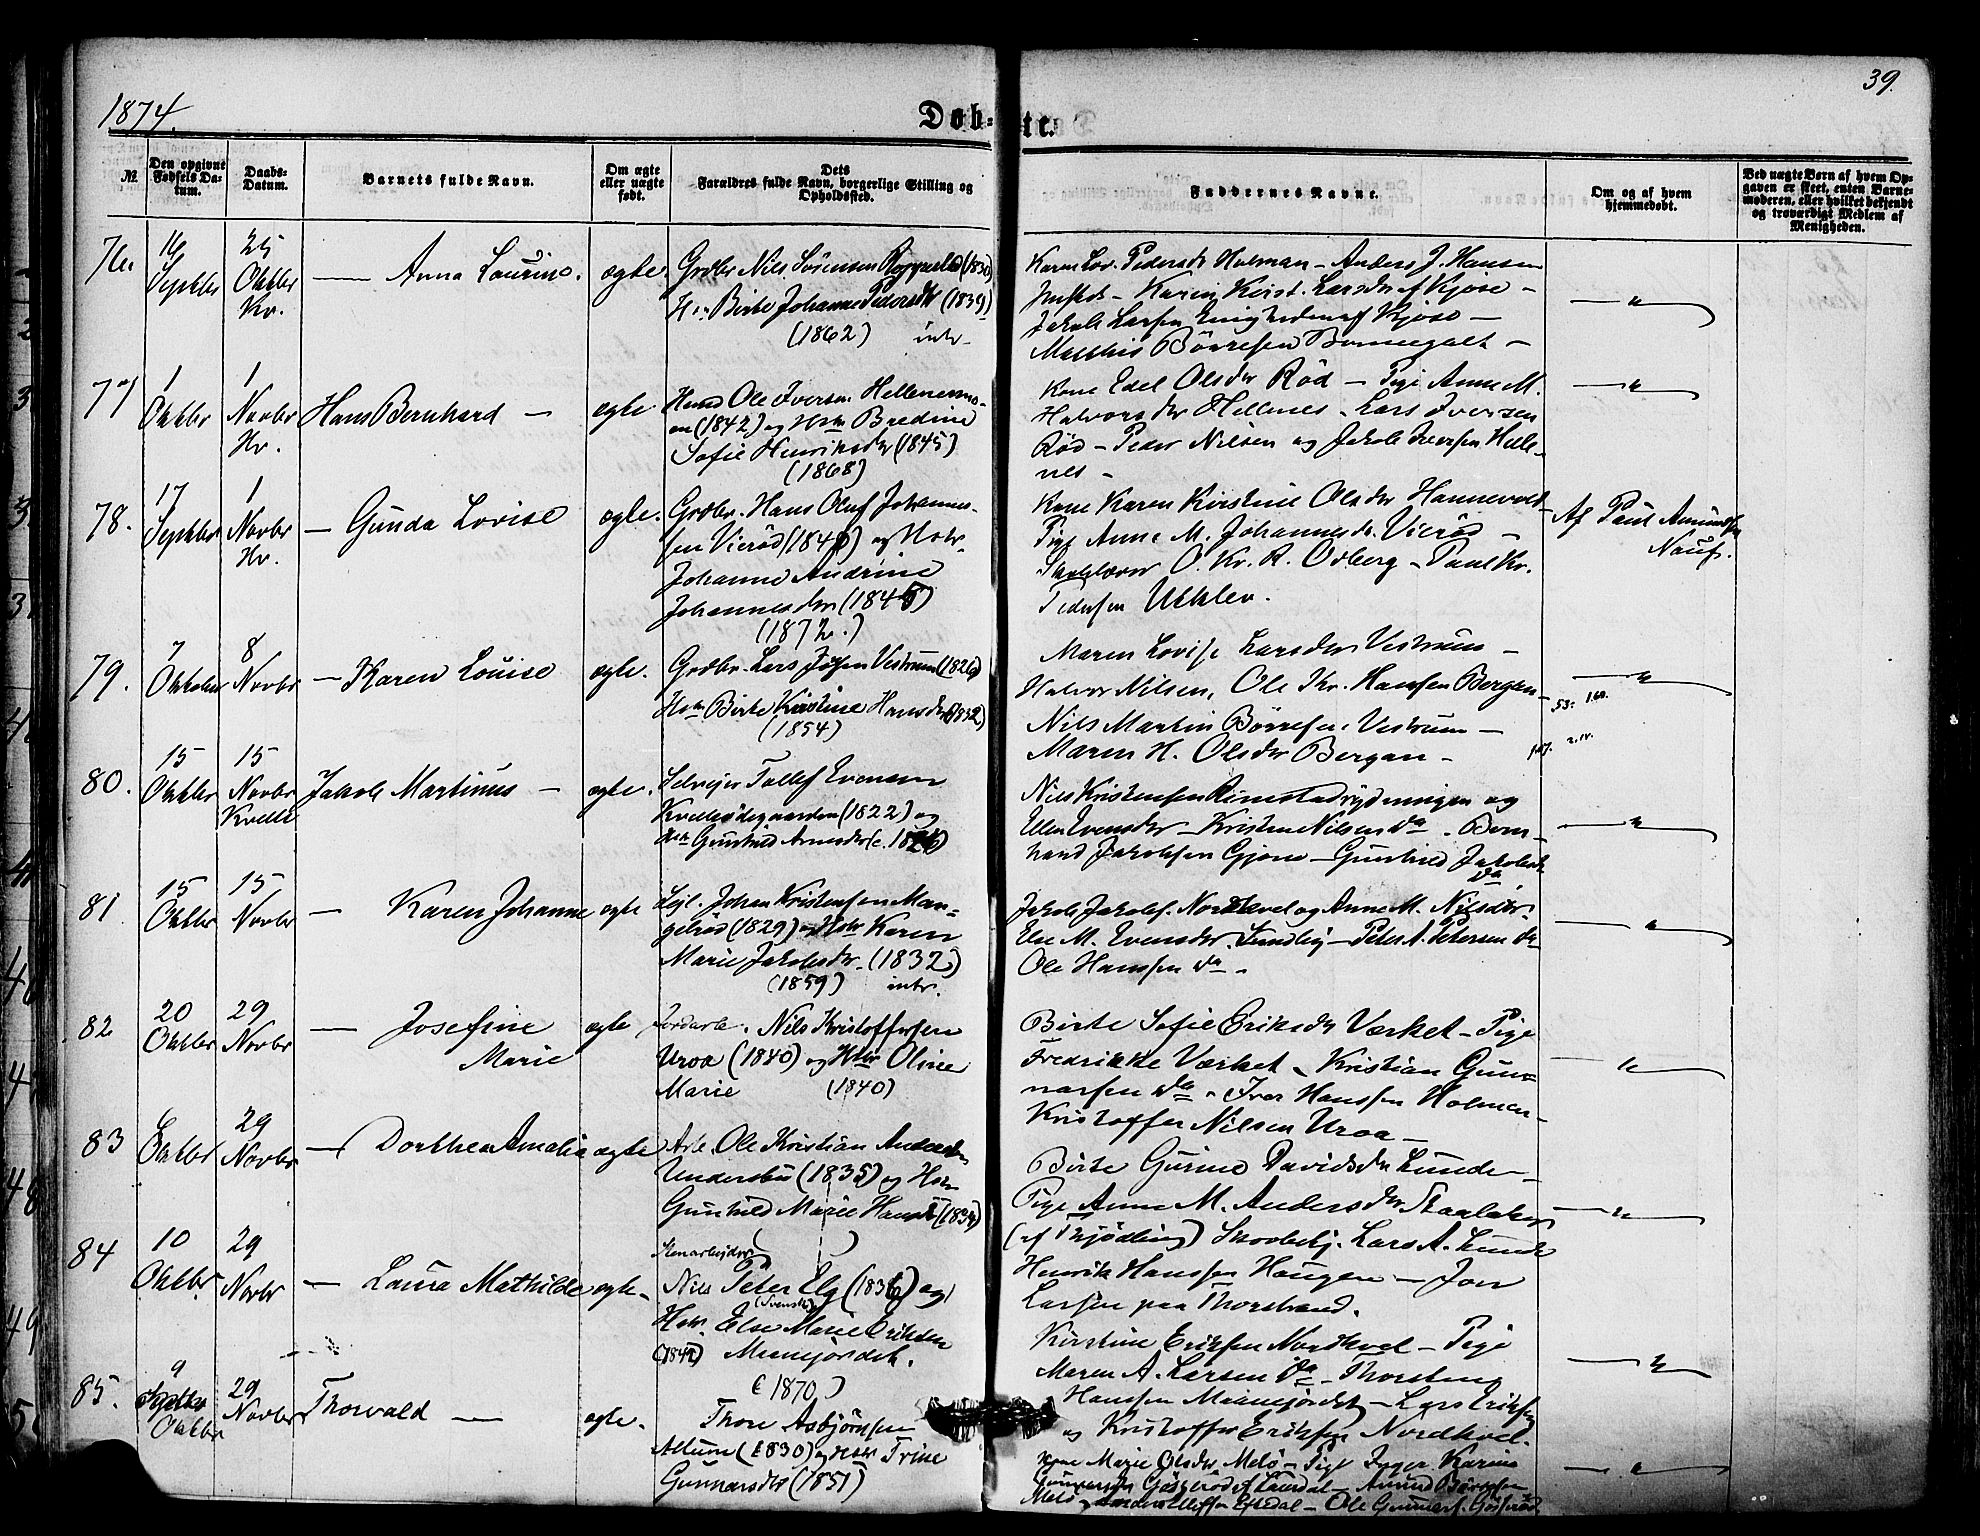 1874.
Dåb-
ste.
39.
№
Den opgivne Fødsels Datum.
Daabs-Datum.
Barnets fulde Navn.
Om ægte eller uægte født.
Dets Forældres fulde Navn, borgerlige Stilling og Opholdssted.
Faddernes Navne.
Om og af hvem hjemmedøbt.
Ved uægte Børn af hvem Opgaven er skeet, enten Barnemoderen, eller hvilket bekjendt og troværdigt Medlem af Menigheden.
76.
16 Septbr
25 Oktbr Kv.
— Anna Laurine.
ægte.
Grdbr Nils Sørensen (1830)
Birte Johanne Pedersdtr (1839)
(1862) intr.
Karen Lov. Pedersdr Holman – Anders J. Hansen
– Karen Kirst. Larsdr af Kjose –
Jakob Larsen Enigheden af Kjose –
Matthis Börresen
— " —
77
1 Oktbr
1 Novbr Hv.
Hans Bernhard —
ægte
Ole Iversen Hellenesmo-
en (1842) og Hstr Bredine
Sofie Henriksdr (1845)
(1868)
Kone Edel Olsdtr Röd – Pige Anne M.
Halvorsdtr Hellenes – Lars Iversen
Röd – Peder Nilsen og Jakob Iversen Helle-
nes –
— " —
78.
17 Septbr
1 Novbr Hv.
— Gunda Lovise
ægte.
Grdbr. Hans Oluf Johannes-
sen Vieröd og Hstr.
Johanne Andrine
Johannesdtr (1845)
(1872.)
Kone Karen Kirstine Olsdtr Hannevold
Pige Anne M. Johannesdr. Vieröd –
Skolelærer O. Kr. R. Odberg – Paul Kr.
Pedersen Ueklev.
Af Paul Amundsen
Nauf.
79.
7 Oktober
8 Novbr
— Karen Louise
ægte.
Grdbr. Lars Vestrum (1826)
Hstr Birte Kirstine Hansdtr (1832)
(1854)
Maren Lovise Larsdtr Vestrum –
Halvor Nilsen, Ole Chr. Hansen Bergan –
Nils Martin Börresen Vestrum –
Maren H. Olsdtr Bergan –
— " —
80.
15 Oktbr
15 Novbr Kvelle
Jakob Martinus —
ægte.
Selvejer Tollef Evensen
Kvelleödegaarden (1822) og
Hstr Gunhild Arnesdtr
Nils Kristensen Rimstadrydningen og
Ellen Evensdtr – Kristen Nilsen Da – Bern-
hard Jakobsen Gjone – Gunhild Jakobsdr
Da
— " —
81.
15 Oktbr
15 Novbr
— Karen Johanne
ægte
Lejl. Johan Kristensen Man-
gelröd (1829) og Hstr Karen
Marie Jakobsdr. (1832)
(1859) intr.
Jakob Jakobs. Nordkvel og Anne M. Nilsdtr.
Else M. Evensdtr – Peter A. Petersen Da
Ole Hanssen Da –
— " —
82
20 Oktbr
29 Novbr
— Josefine
Marie
ægte
Jordarb. Nils Kristoffersen
Uroa (1840) og Hstr Oline
Marie (1840)
Birte Sofie Eriksdtr Værket – Pige
Fredrikke Værket – Kristian Gun-
narsen Da – Iver Hanssen Holman –
Kristoffer Nilsen Uroa –
— " —
83
6 Oktbr
29 Novbr
— Dorthea Amalie
ægte
Arb. Ole Kristian Anderssen
Undersbu (1835) og Hstr
Gunhild Marie
Birte Gurine Davidsdtr Lunde –
Pige Anne M. Andersdtr
(af Tjødling) Skovbetj. Lars A. Lunde
Henrik Hanssen Haugen – Jon
Larsen paa Thorstrand.
— " —
84
10 Oktbr
29 Novbr
— Laura Mathilde
ægte –
Stenarbejder
Nils Peter Elg (1836) og
(Svensk)
Hstr. Else Marie Eriksen
(1842) Mianejordet.
(1870)
Kirstine Eriksen Nordkvel – Pige
Maren A. Larsen Da – Thorsteng
Hanssen Mianejordet – Lars Eriksen
og Kristoffer Eriksen Nordkvel.
— " —
85.
9 Oktbr
29 Novbr
Thorvald —
ægte.
Thore Asbjörnsen
Allum (1830) og Hstr Trine
Gunnarsdtr (1851)
Kone Marie Olsdtr Melö – Pige Inger Karine
Gunnarsdtr Gösseröd af Laurdal – Amund
Melö – Anders Ellefsen Eftedal – Ole Gunnars. Gösseröd
— " —